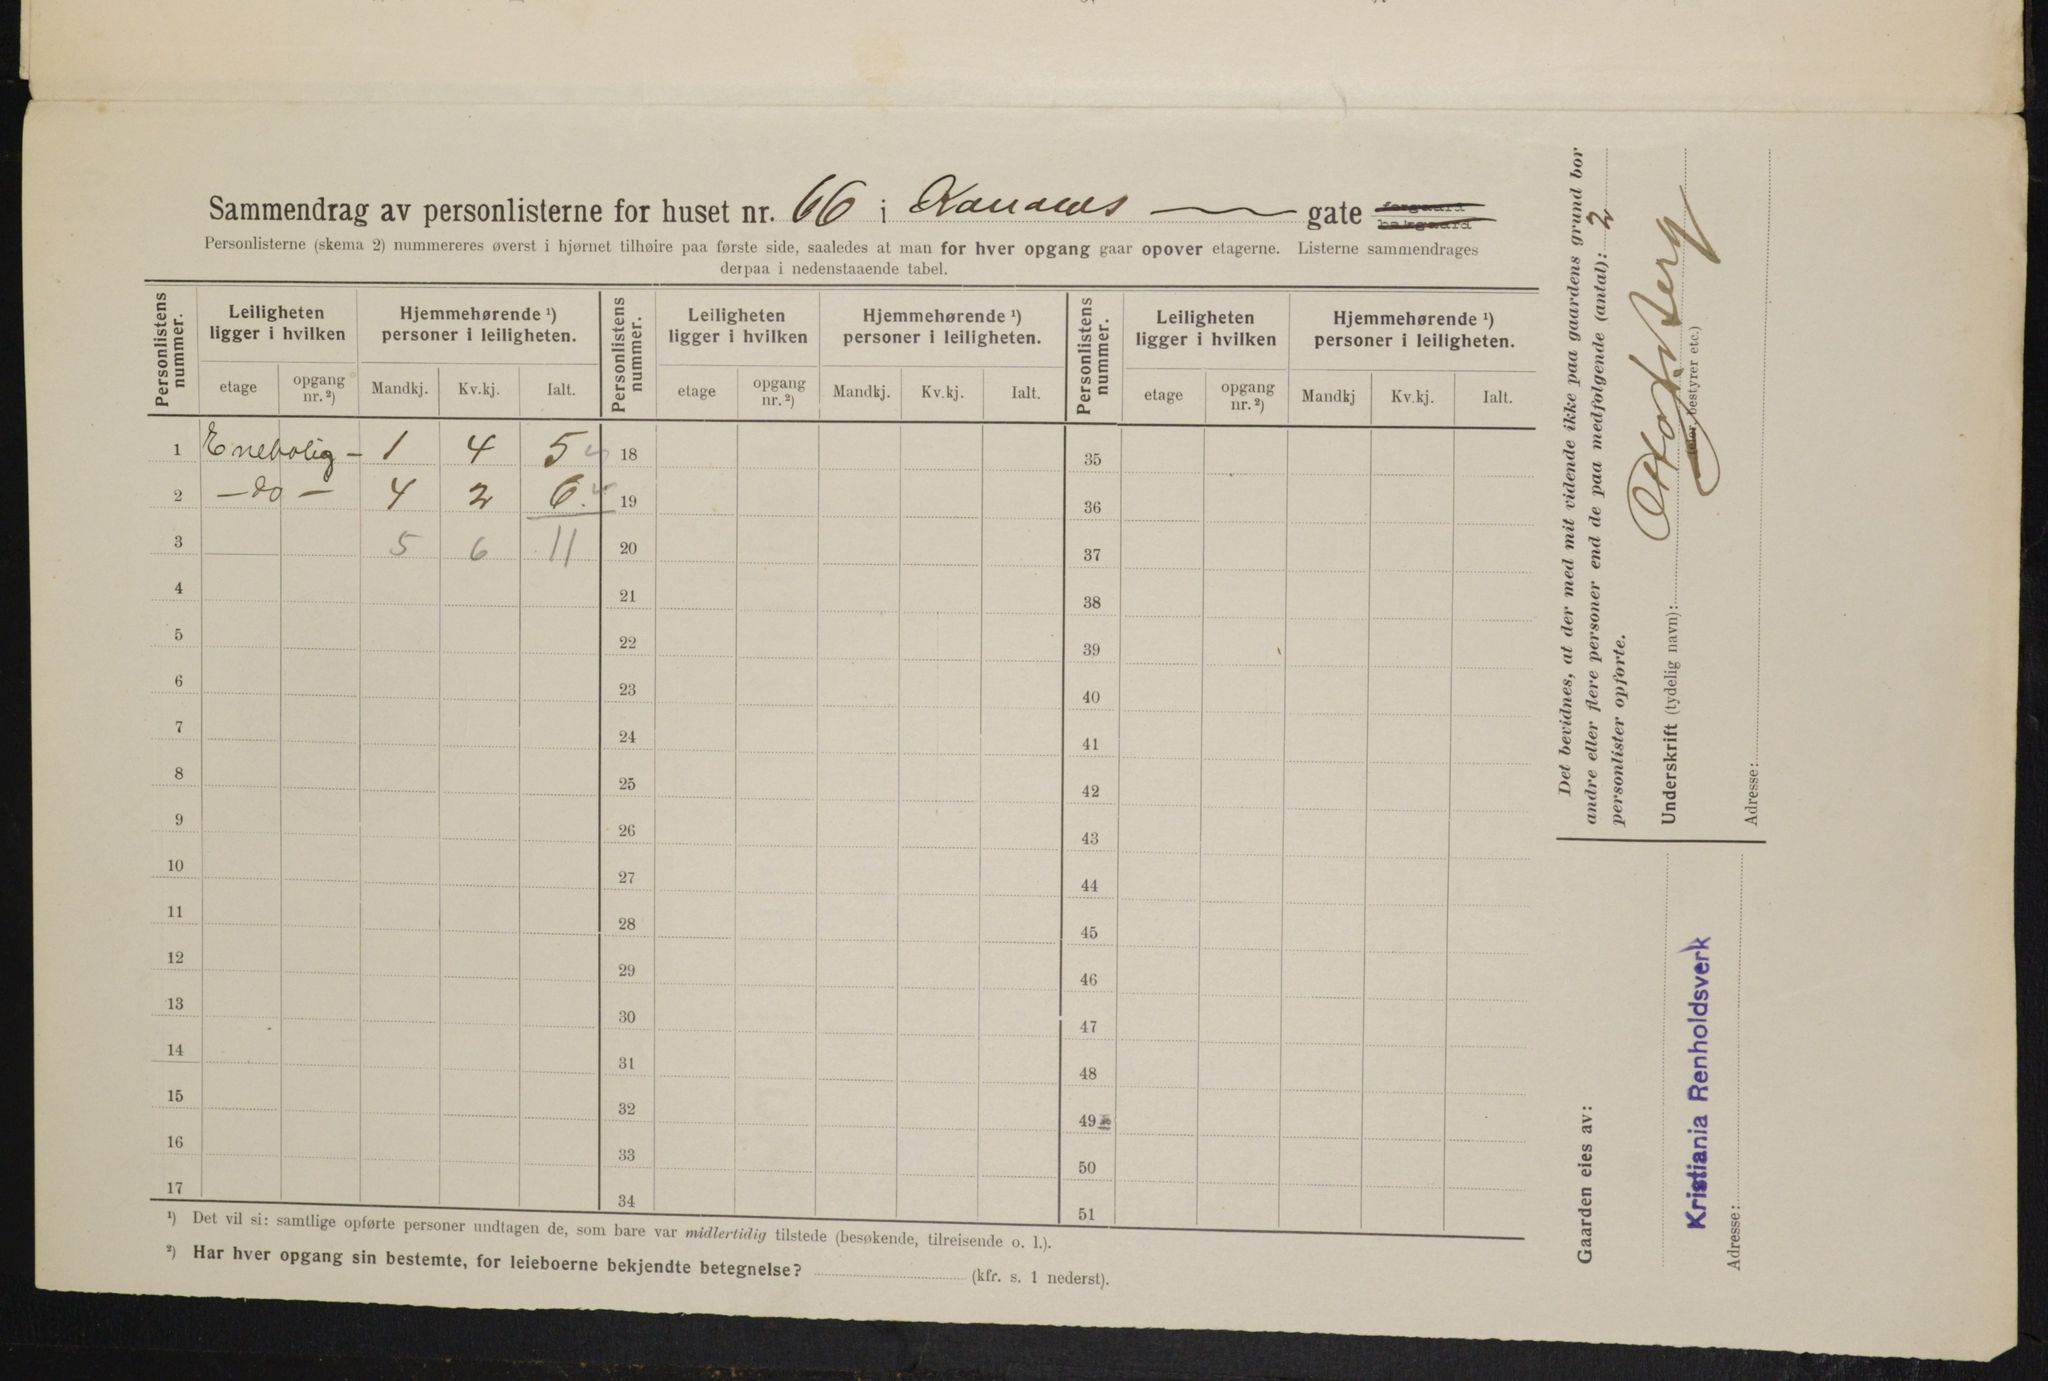 Sammendrag av personlisterne for huset nr. 66 i Kanaals gate forgaard
bakgaard
Personlisterne (skema 2) nummereres øverst i hjørnet tilhøire paa første side, saaledes at man for hver opgang gaar opover etagerne. Listerne sammendrages
derpaa i nedenstaaende tabel.
Personlistens nummer. Leiligheten ligger i hvilken Hjemmehørende ¹) personer i leiligheten. Personlistens nummer. Leiligheten ligger i hvilken Hjemmehørende ¹) personer i leiligheten. Personlistens nummer. Leiligheten ligger i hvilken Hjemmehørende ¹) personer i leiligheten.
etage opgang nr. ²) Mandkj. Kv.kj. Ialt. etage opgang nr. ²) Mandkj. Kv.kj. Ialt. etage opgang nr. ²) Mandkj Kv.kj. Ialt.
1 Enebolig – 1 4 5 18 35
2 – do – 4 2 6. 19 36
3 5 6 11 20 37
4 21 38
5 22 39
6 23 40
7 24 41
8 25 42
9 26 43
10 27 44
11 28 45
12 29 46
13 30 47
14 31 48
15 32 49
16 33 50
17 34 51
¹) Det vil si: samtlige opførte personer undtagen de, som bare var midlertidig tilstede (besøkende, tilreisende o. l.).
²) Har hver opgang sin bestemte, for leieboerne bekjendte betegnelse? (kfr. s. 1 nederst).
Det bevidnes, at der med mit vidende ikke paa gaardens grund bor
andre eller flere personer end de paa medfølgende (antal): 2
personlister opførte.
Underskrift (tydelig navn):
(eier, bestyrer etc.)
Adresse:
Gaarden eies av:
Kristiania Renholdsverk
Adresse: